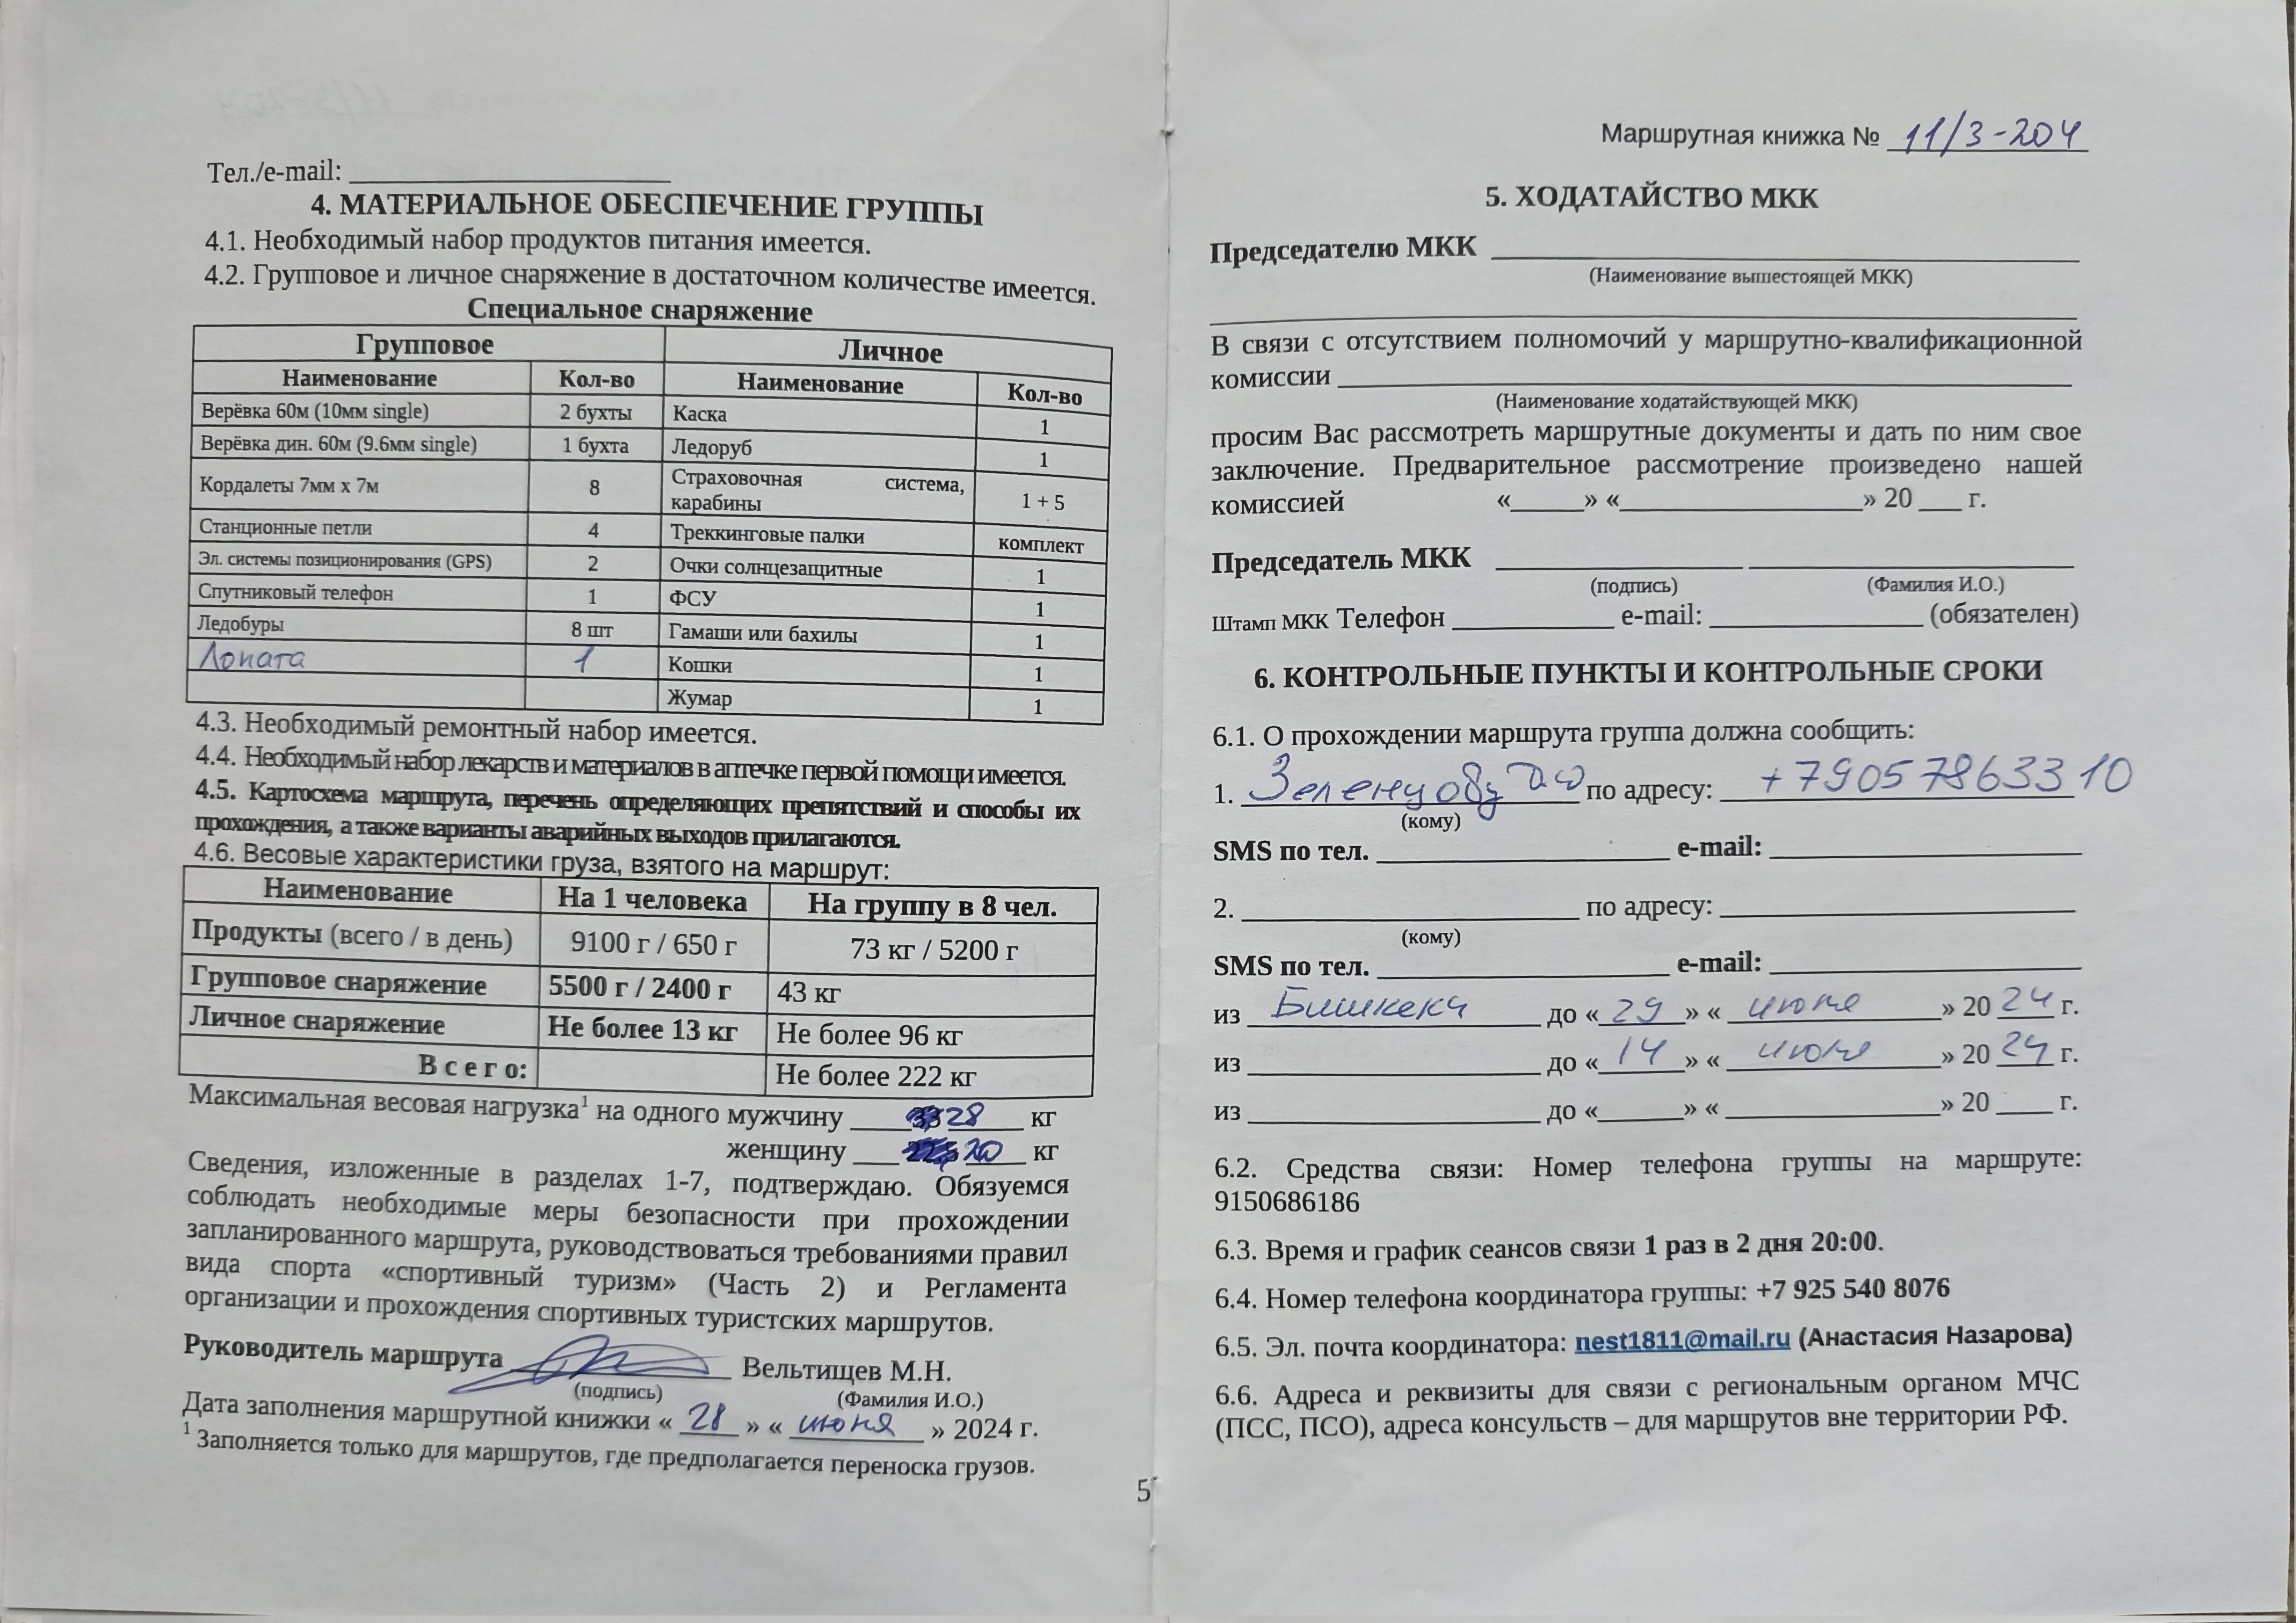 Тел./e-mail: ____________
4. МАТЕРИАЛЬНОЕ ОБЕСПЕЧЕНИЕ ГРУППЫ
4.1. Необходимый набор продуктов питания имеется.
4.2. Групповое и личное снаряжение в достаточном количестве имеется.
Специальное снаряжение
Групповое Личное
Наименование Кол-во Наименование Кол-во
Верёвка 60м (10мм single) 2 бухты Каска 1
Верёвка дин. 60м (9.6мм single) 1 бухта Ледоруб 1
Кордалеты 7мм х 7м 8 Страховочная система, карабины 1 + 5
Станционные петли 4 Треккинговые палки комплект
Эл. системы позиционирования (GPS) 2 Очки солнцезащитные 1
Спутниковый телефон 1 ФСУ 1
Ледобуры 8 шт Гамаши или бахилы 1
Лопата 1 Кошки 1
Жумар 1
4.3. Необходимый ремонтный набор имеется.
4.4. Необходимый набор лекарств и материалов в аптечке первой помощи имеется.
4.5. Картосхема маршрута, перечень определяющих препятствий и способы их
прохождения, а также варианты аварийных выходов прилагаются.
4.6. Весовые характеристики груза, взятого на маршрут:
Наименование На 1 человека На группу в 8 чел.
Продукты (всего / в день) 9100 г / 650 г 73 кг / 5200 г
Групповое снаряжение 5500 г / 2400 г 43 кг
Личное снаряжение Не более 13 кг Не более 96 кг
В с е г о: Не более 222 кг
Максимальная весовая нагрузка1 на одного мужчину 28 кг
женщину 20 кг
Сведения, изложенные в разделах 1-7, подтверждаю. Обязуемся
соблюдать необходимые меры безопасности при прохождении
запланированного маршрута, руководствоваться требованиями правил
вида спорта «спортивный туризм» (Часть 2) и Регламента
организации и прохождения спортивных туристских маршрутов.
Руководитель маршрута Вельтищев М.Н.
(подпись) (Фамилия И.О.)
Дата заполнения маршрутной книжки « 28 » « июня » 2024 г.
1 Заполняется только для маршрутов, где предполагается переноска грузов.
5
Маршрутная книжка № 11/3-204
5. ХОДАТАЙСТВО МКК
Председателю МКК ____________
(Наименование вышестоящей МКК)
В связи с отсутствием полномочий у маршрутно-квалификационной
комиссии ____________
(Наименование ходатайствующей МКК)
просим Вас рассмотреть маршрутные документы и дать по ним свое
заключение. Предварительное рассмотрение произведено нашей
комиссией «_____» «____________» 20 ___ г.
Председатель МКК ____________ ____________
(подпись) (Фамилия И.О.)
Штамп МКК Телефон ____________ e-mail: ____________ (обязателен)
6. КОНТРОЛЬНЫЕ ПУНКТЫ И КОНТРОЛЬНЫЕ СРОКИ
6.1. О прохождении маршрута группа должна сообщить:
1. Зеленцову по адресу: +79057863310
(кому)
SMS по тел. ____________ e-mail: ____________
2. ____________ по адресу: ____________
(кому)
SMS по тел. ____________ e-mail: ____________
из Бишкека до « 29 » « июня » 20 24 г.
из ____________ до « 14 » « июля » 20 24 г.
из ____________ до «_____» «____________» 20 ____ г.
6.2. Средства связи: Номер телефона группы на маршруте:
9150686186
6.3. Время и график сеансов связи 1 раз в 2 дня 20:00.
6.4. Номер телефона координатора группы: +7 925 540 8076
6.5. Эл. почта координатора: nest1811@mail.ru (Анастасия Назарова)
6.6. Адреса и реквизиты для связи с региональным органом МЧС
(ПСС, ПСО), адреса консульств – для маршрутов вне территории РФ.